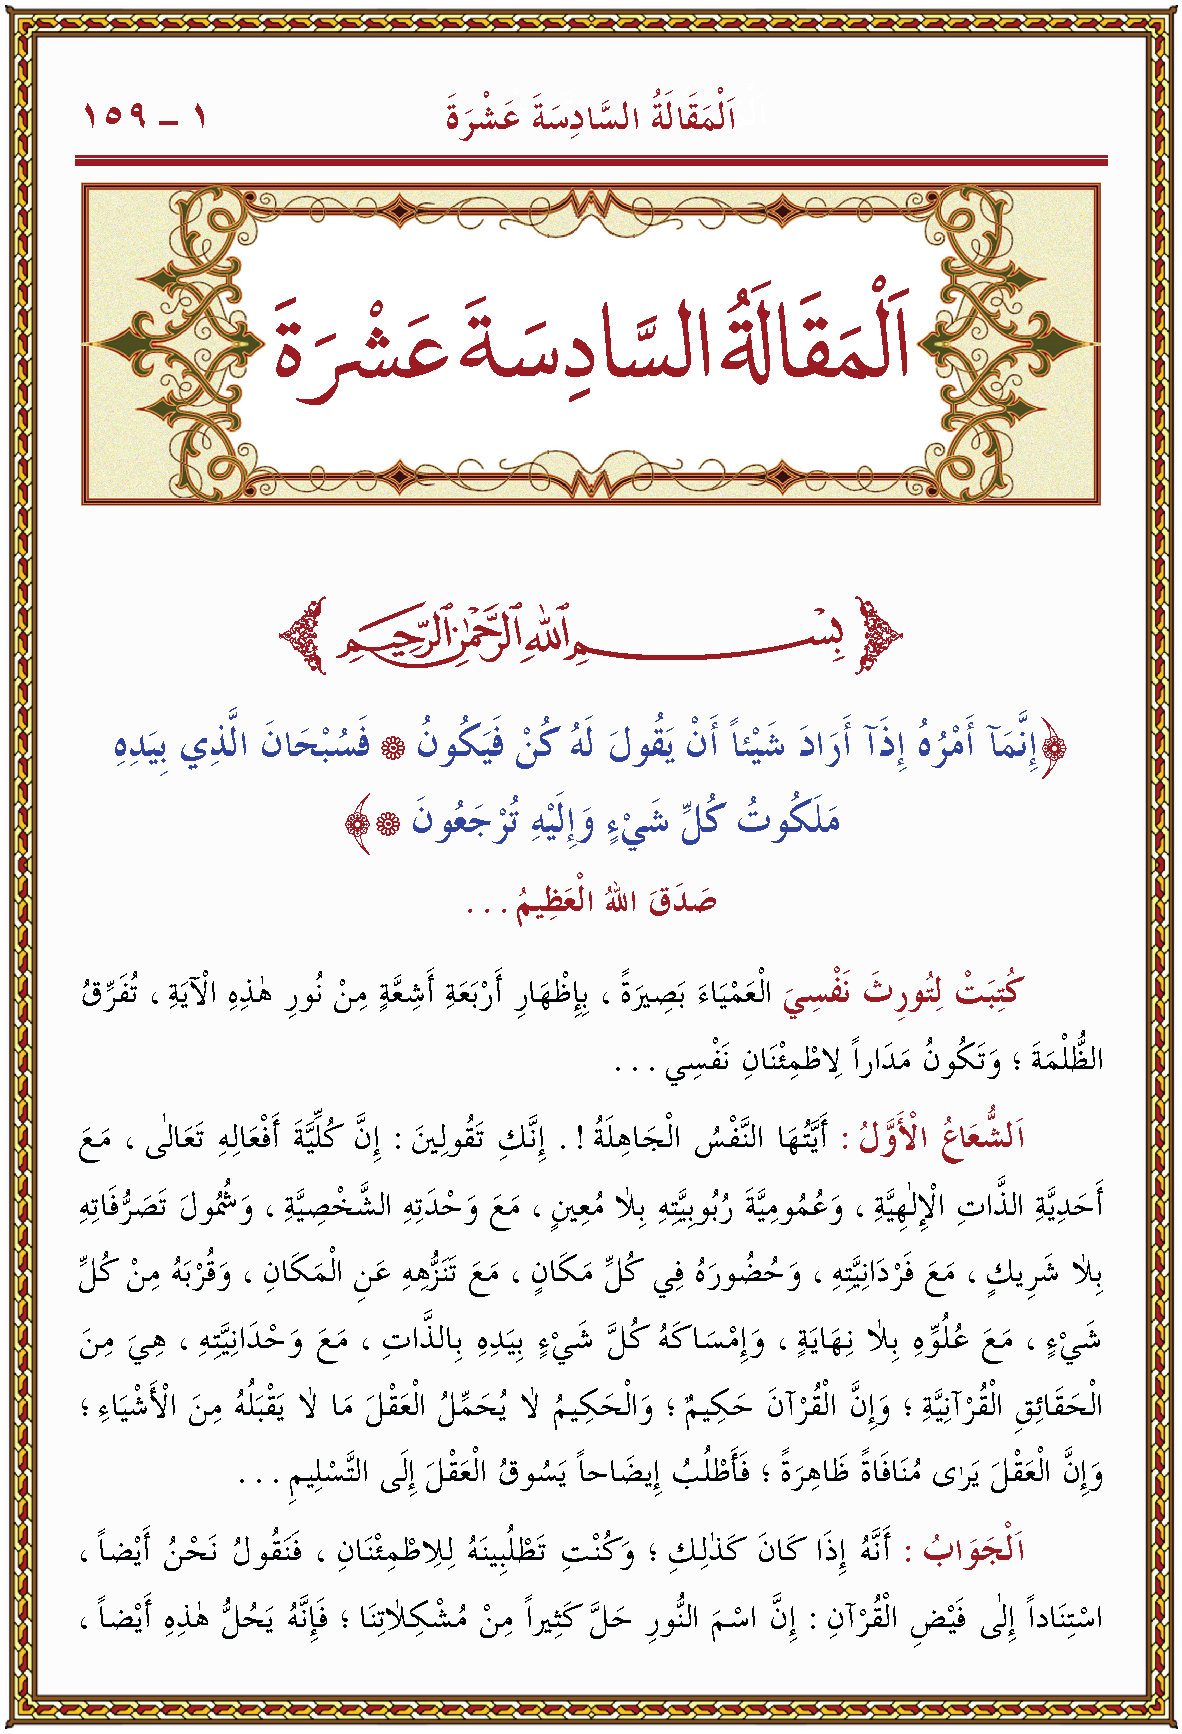 اَلْمَقَالَةُ السَّادِسَةَ عَشْرَةَ ١ ــ ١٥٩
اَلْمَقَالَةُ السَّادِسَةَ عَشْرَةَ
بِسْمِ ٱللهِ ٱلرَّحْمٰنِ ٱلرَّحِيمِ
﴿إِنَّمَآ أَمْرُهُ إِذَآ أَرَادَ شَيْئاً أَنْ يَقُولَ لَهُ كُنْ فَيَكُونُ ۞ فَسُبْحَانَ الَّذِي بِيَدِهِ
مَلَكُوتُ كُلِّ شَيْءٍ وَإِلَيْهِ تُرْجَعُونَ ۞﴾
صَدَقَ اللهُ الْعَظِيمُ . . .
كُتِبَتْ لِتُورِثَ نَفْسِيَ الْعَمْيَاءَ بَصِيرَةً ، بِإِظْهَارِ أَرْبَعَةِ أَشِعَّةٍ مِنْ نُورِ هٰذِهِ الْآيَةِ ، تُفَرِّقُ
الظُّلْمَةَ ؛ وَتَكُونُ مَدَاراً لِاطْمِئْنَانِ نَفْسِي . . .
اَلشُّعَاعُ الْأَوَّلُ : أَيَّتُهَا النَّفْسُ الْجَاهِلَةُ ! . إِنَّكِ تَقُولِينَ : إِنَّ كُلِّيَّةَ أَفْعَالِهِ تَعَالٰى ، مَعَ
أَحَدِيَّةِ الذَّاتِ الْإِلٰهِيَّةِ ، وَعُمُومِيَّةَ رُبُوبِيَّتِهِ بِلَا مُعِينٍ ، مَعَ وَحْدَتِهِ الشَّخْصِيَّةِ ، وَشُمُولَ تَصَرُّفَاتِهِ
بِلَا شَرِيكٍ ، مَعَ فَرْدَانِيَّتِهِ ، وَحُضُورَهُ فِي كُلِّ مَكَانٍ ، مَعَ تَنَزُّهِهِ عَنِ الْمَكَانِ ، وَقُرْبَهُ مِنْ كُلِّ
شَيْءٍ ، مَعَ عُلُوِّهِ بِلَا نِهَايَةٍ ، وَإِمْسَاكَهُ كُلَّ شَيْءٍ بِيَدِهِ بِالذَّاتِ ، مَعَ وَحْدَانِيَّتِهِ ، هِيَ مِنَ
الْحَقَائِقِ الْقُرْآنِيَّةِ ؛ وَإِنَّ الْقُرْآنَ حَكِيمٌ ؛ وَالْحَكِيمُ لَا يُحَمِّلُ الْعَقْلَ مَا لَا يَقْبَلُهُ مِنَ الْأَشْيَاءِ ؛
وَإِنَّ الْعَقْلَ يَرٰى مُنَافَاةً ظَاهِرَةً ؛ فَأَطْلُبُ إِيضَاحاً يَسُوقُ الْعَقْلَ إِلَى التَّسْلِيمِ . . .
اَلْجَوَابُ : أَنَّهُ إِذَا كَانَ كَذٰلِكِ ؛ وَكُنْتِ تَطْلُبِينَهُ لِلِاطْمِئْنَانِ ، فَنَقُولُ نَحْنُ أَيْضاً ،
اسْتِنَاداً إِلٰى فَيْضِ الْقُرْآنِ : إِنَّ اسْمَ النُّورِ حَلَّ كَثِيراً مِنْ مُشْكِلَاتِنَا ؛ فَإِنَّهُ يَحُلُّ هٰذِهِ أَيْضاً ،